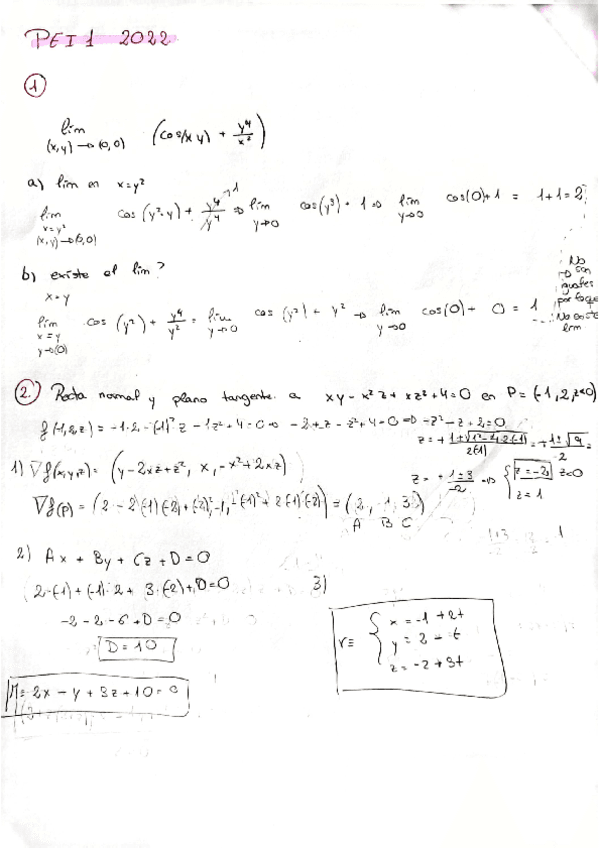 PEI 1 2022
①
lim (x,y)→(0,0) (cos(xy) + y⁴/x²)
a) lim en x=y²
lim x=y² (x,y)→(0,0) cos(y²·y) + y⁴/y⁴ →1 ⇒ lim y→0 cos(y³) + 1 ⇒ lim y→0 cos(0)+1 = 1+1=2
b) existe el lim?
x=y
lim x=y y→(0) cos(y²) + y⁴/y² = lim y→0 cos(y²) + y² → lim y→0 cos(0) + 0 = 1
No son iguales
por lo que
No existe
lim
②. Recta normal y plano tangente a xy - x²z + xz² + 4 = 0 en P=(-1,2,z<0)
f(-1,2,z) = -1·2 - (-1)²z - 1z² + 4 = 0 ⇒ -2 + z - z² + 4 = 0 ⇒ -z² - z + 2 = 0
1) ∇f(x,y,z) = (y-2xz+z², x, -x²+2xz)
z = + 1±3/-2 ⇒ { z=-2 z<0
z=1
∇f(P) = (2-2·(-1)(-2)+(-2)², -1, -(-1)²+2·(-1)·(-2)) = (2, -1, 3)
A B C
2) Ax + By + Cz + D = 0
2·(-1)+(-1)·2 + 3·(-2)+D=0
-2-2-6+D=0
D=10
π≡2x - y + 3z + 10 = 0
3)
r≡ { x = -1 + 2t
y = 2 - t
z = -2 + 3t